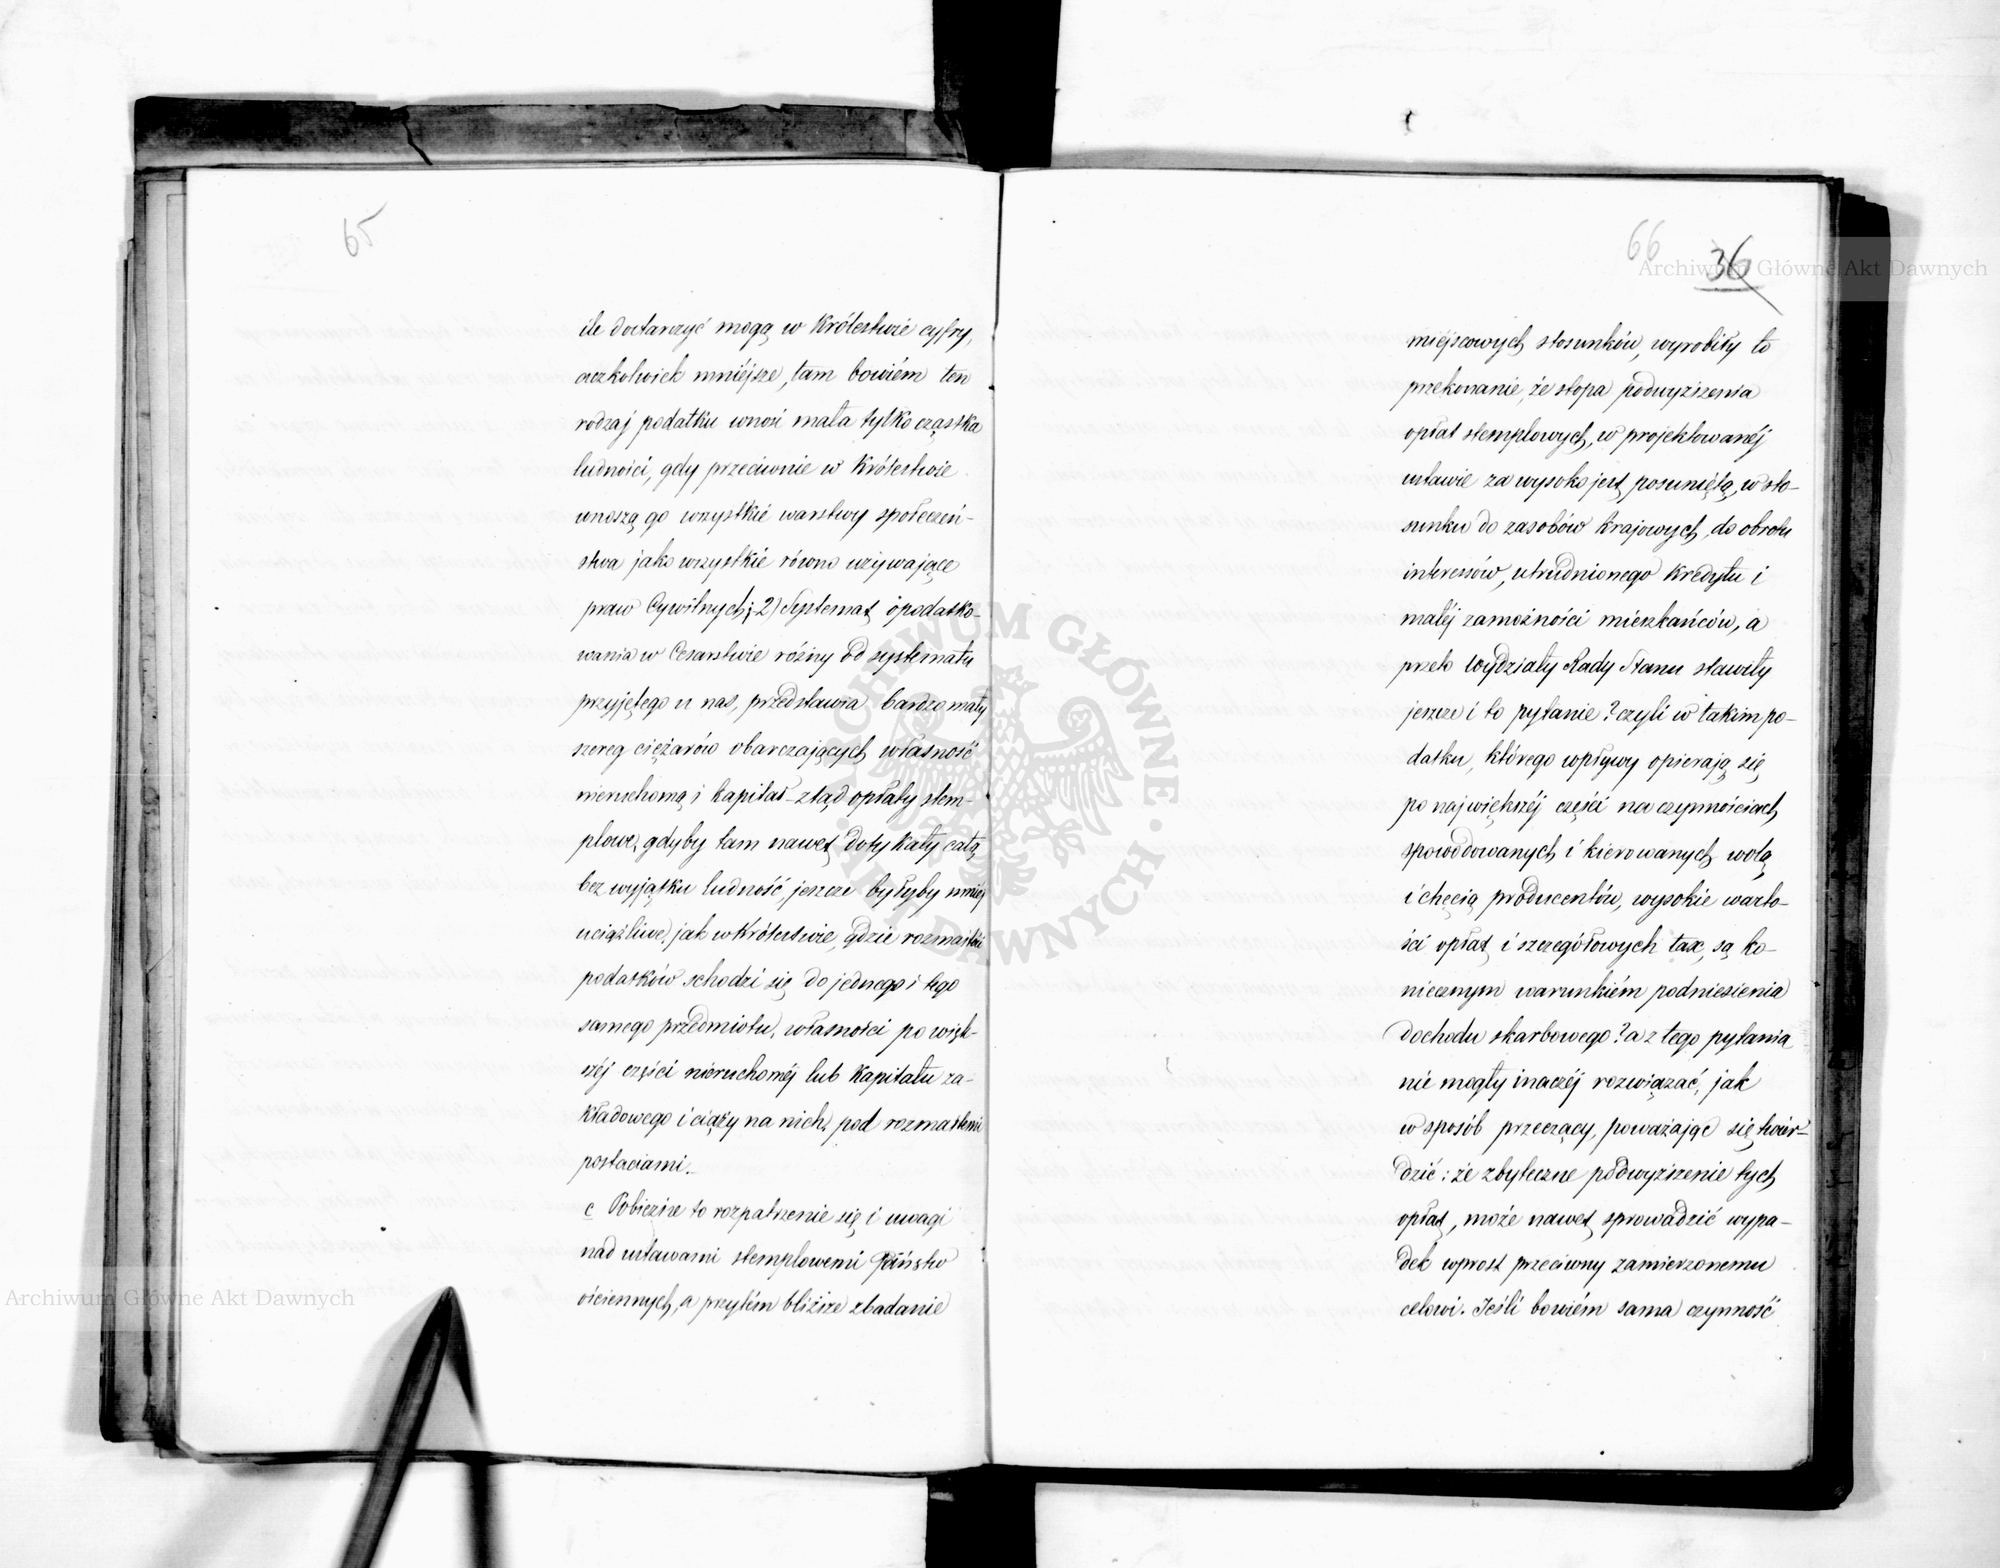 65
ile dostarczyć mogą w Królestwie cyfry,
aczkolwiek mniéjsze, tam bowiém ten
rodzaj podatku wnosi mała tylko cząstka
ludności, gdy przeciwnie w Królestwie
wnoszą go wszystkie warstwy społeczeń-
stwa jako wszystkie równo używające
praw Cywilnych; 2) Systemat opodatko-
wania w Cesarstwie różny od systematu
przyjętego u nas, przedstawia bardzo mały
szereg ciężarów obarczających własność
nieruchomą i kapitał – ztąd opłaty stem-
plowe, gdyby tam nawet dotykały całą
bez wyjątku ludność, jeszcze byłyby mniéj
uciążliwe, jak w Królestwie, gdzie rozmaitość
podatków schodzi się do jednego i tego
samego przedmiotu, własności po więk-
széj części nieruchoméj lub kapitału za-
kładowego i ciąży na nich, pod rozmaitemi
postaciami.
c Pobieżne to rozpatrzenie się i uwagi
nad ustawami stemplowemi Państw
ościennych, a przytém bliższe zbadanie
66 36
miéjscowych stosunków, wyrobiły to
przekonanie, że stopa podwyższenia
opłat stemplowych, w projektowanéj
ustawie za wysoko jest posuniętą, w sto-
sunku do zasobów krajowych, do obrotu
interessów, utrudnionego kredytu i
małéj zamożności mieszkańców, a
przeto Wydziały Rady Stanu stawiły
jeszcze i to pytanie? czyli w takim po-
datku, którego wpływy opierają się
po największéj części na czynnościach
spowodowanych i kierowanych wolą
i chęcią producentów, wysokie warto-
ści opłat i szczegółowych tax, są ko-
niecznym warunkiém podniesienia
dochodu skarbowego? a z tego pytania
nie mogły inaczéj rozwiązać, jak
w sposób przeczący, poważając się twier-
dzić: że zbyteczne podwyższenie tych
opłat, może nawet sprowadzić wypa-
dek wprost przeciwny zamierzonemu
celowi. Jeśli bowiém sama czynność
Archiwum Główne Akt Dawnych
Archiwum Główne Akt Dawnych
ARCHIWUM GŁÓWNE · AKT DAWNYCH ·